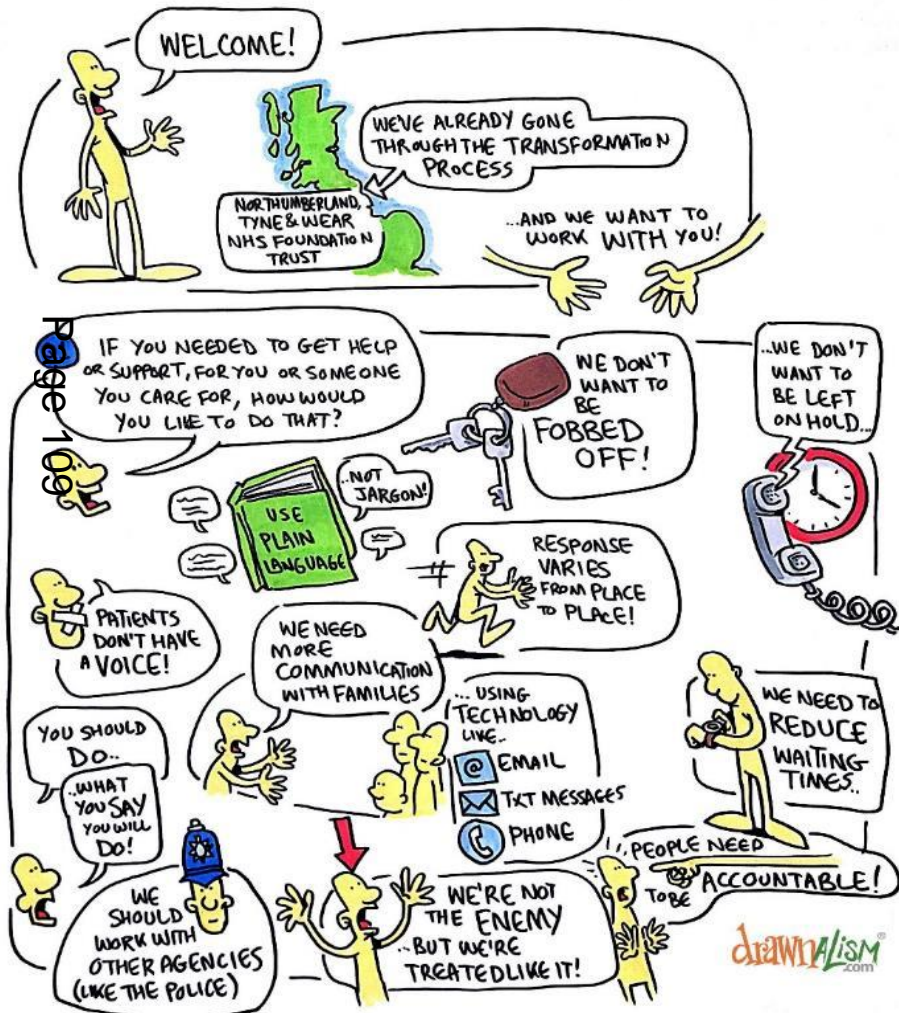 WELCOME!
WE'VE ALREADY GONE
THROUGH THE TRANSFORMATION
PROCESS
NORTHUMBERLAND,
TYNE & WEAR
NHS FOUNDATION
TRUST
...AND WE WANT TO
WORK WITH YOU!
Page 109
IF YOU NEEDED TO GET HELP
OR SUPPORT, FOR YOU OR SOMEONE
YOU CARE FOR, HOW WOULD
YOU LIKE TO DO THAT?
WE DON'T
WANT TO
BE
FOBBED
OFF!
...WE DON'T
WANT TO
BE LEFT
ON HOLD...
USE
PLAIN
LANGUAGE
..NOT
JARGON!
RESPONSE
VARIES
FROM PLACE
TO PLACE!
PATIENTS
DON'T HAVE
A VOICE!
WE NEED
MORE
COMMUNICATION
WITH FAMILIES
... USING
TECHNOLOGY
LIKE..
@ EMAIL
TXT MESSAGES
PHONE
WE NEED TO
REDUCE
WAITING
TIMES..
YOU SHOULD
DO..
..WHAT
YOU SAY
YOU WILL
DO!
WE
SHOULD
WORK WITH
OTHER AGENCIES
(LIKE THE POLICE)
WE'RE NOT
THE ENEMY
...BUT WE'RE
TREATED LIKE IT!
PEOPLE NEED
TO BE ACCOUNTABLE!
drawnALISM®
.com